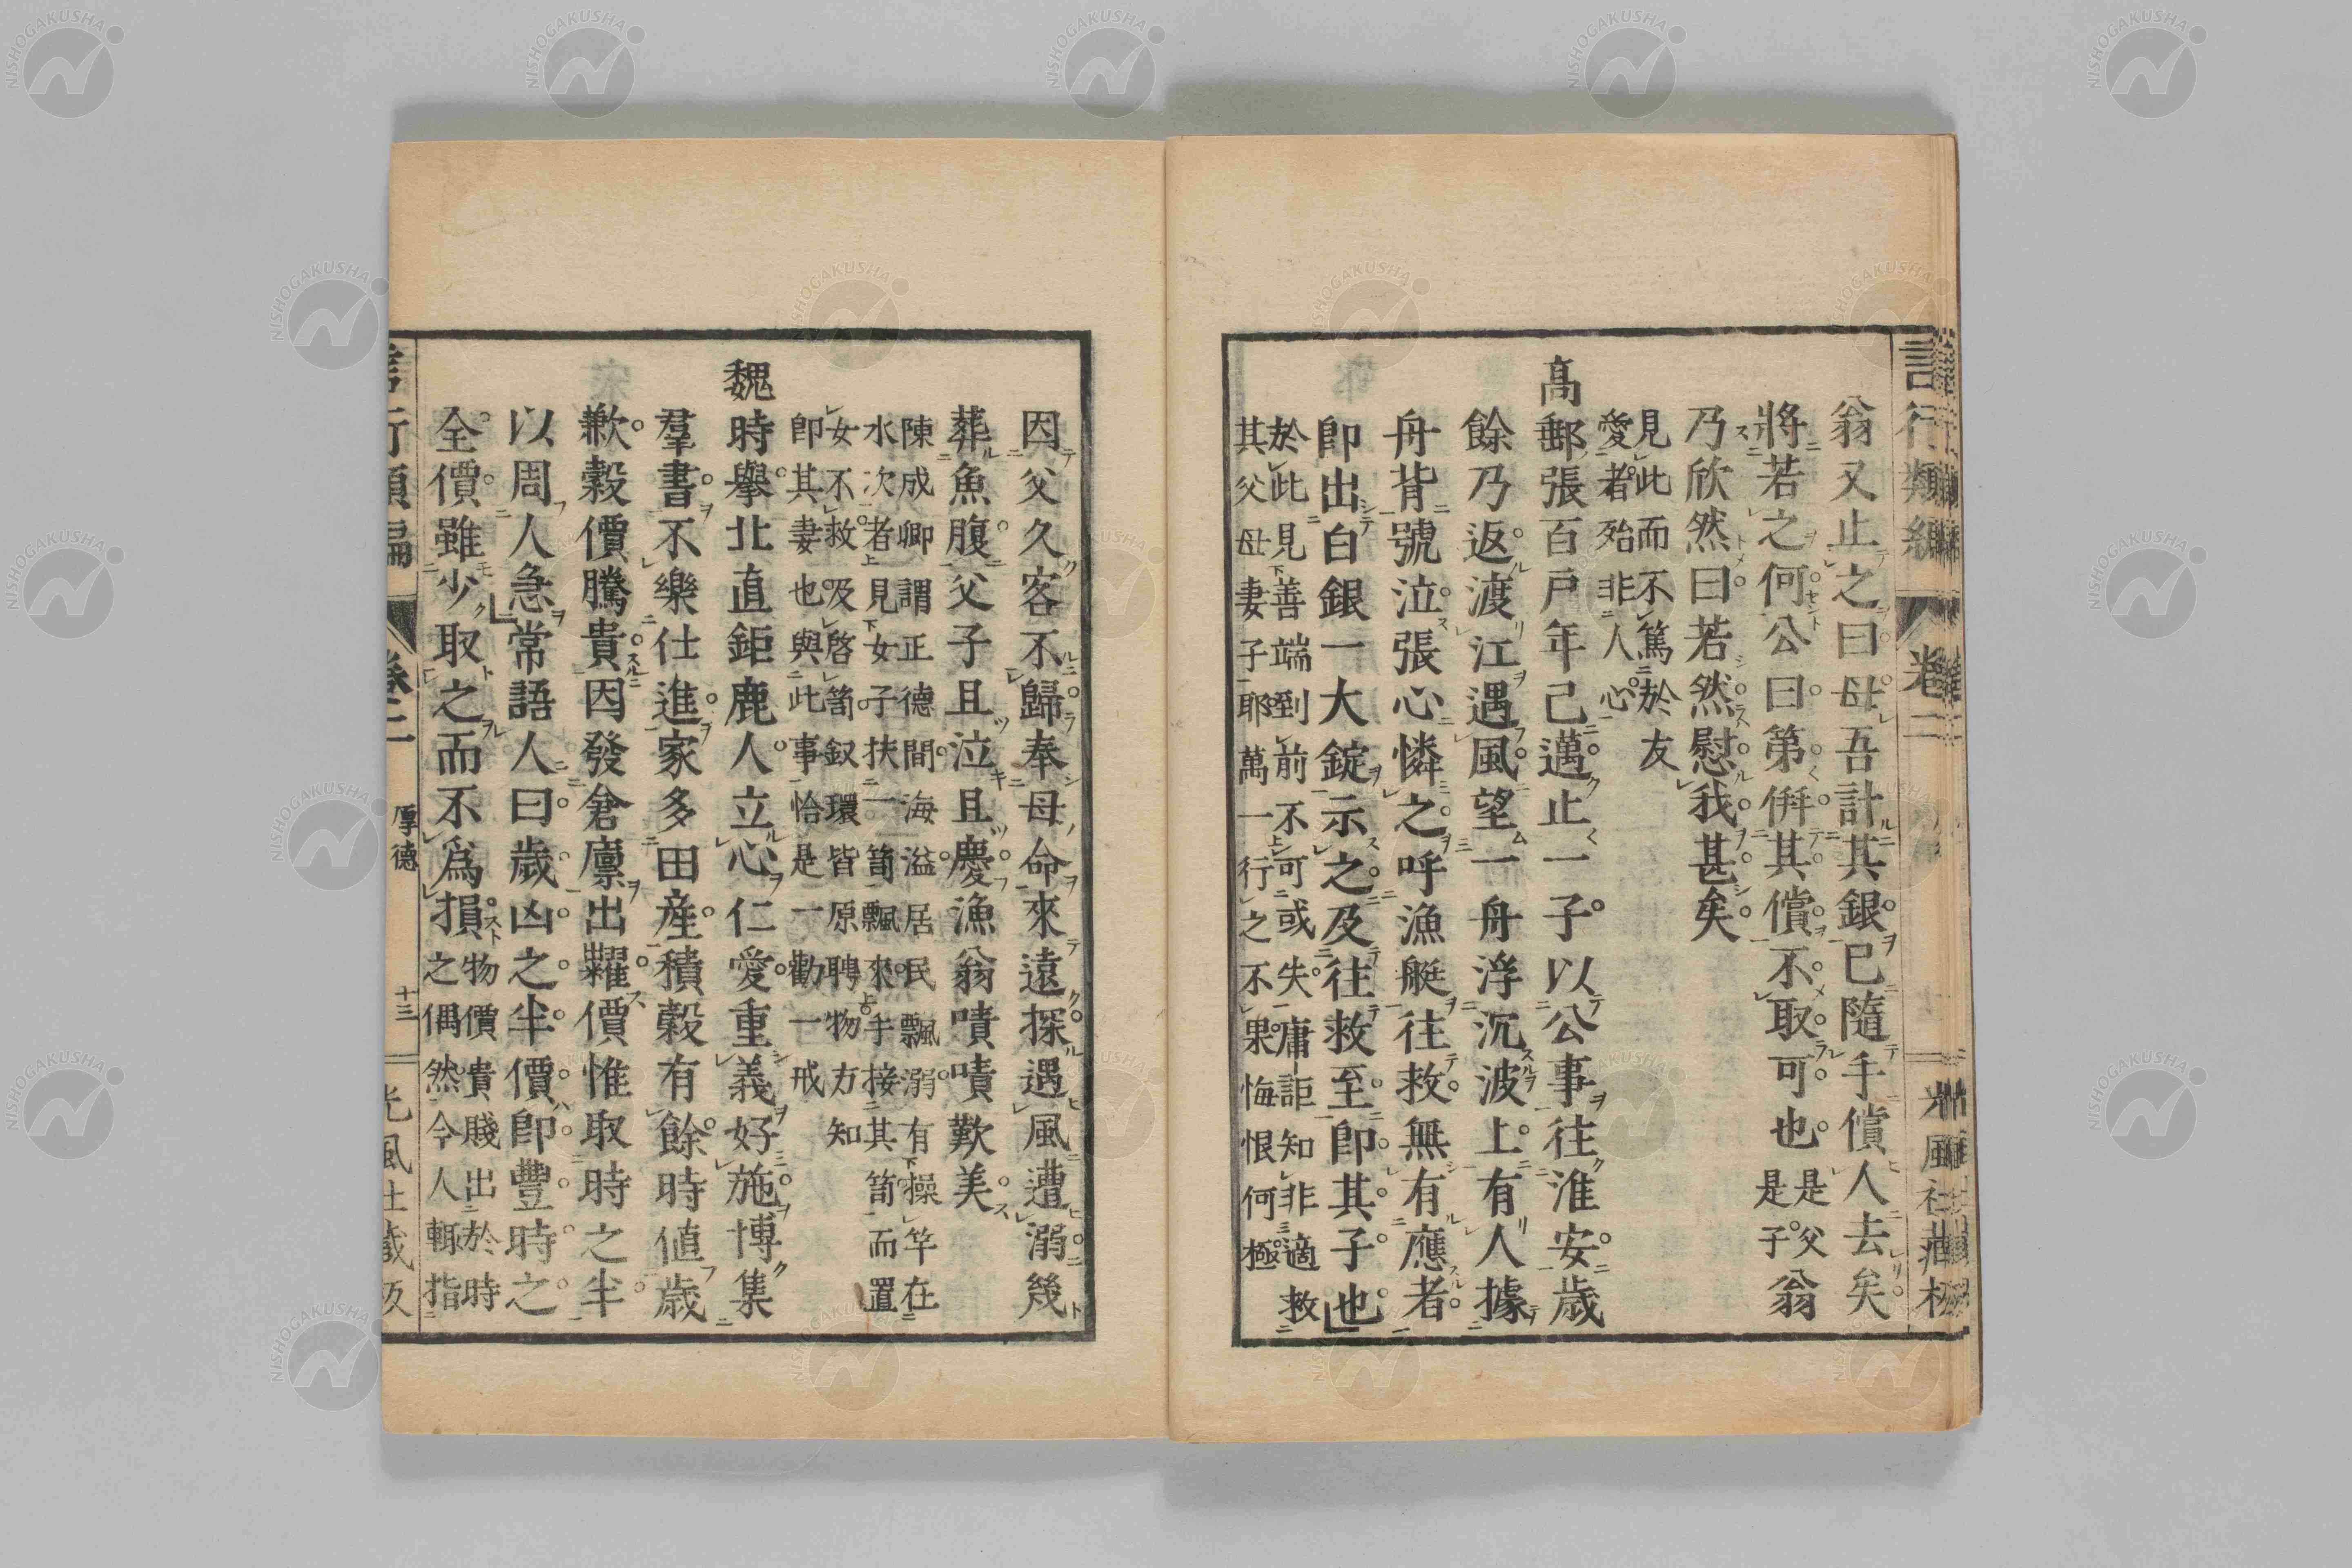 翁又止之曰母吾計其銀已隨手償人去矣
將若之何公曰第倂其償不取可也是父是子翁
乃欣然曰若然慰我甚矣
見此而不篤於友
愛者殆非人心
高郵張百戸年已邁止一子以公事往淮安歲
餘乃返渡江遇風望一舟浮沉波上有人據
舟背號泣張心憐之呼漁艇往救無有應者
卽出白銀一大錠示之及往救至卽其子也
於此見善端到前不可或失庸詎知非適救
其父母妻子耶萬一行之不果悔恨何極
因父久客不歸奉母命來遠探遇風遭溺幾
葬魚腹父子且泣且慶漁翁嘖嘖歎美
陳成卿謂正德間海溢居民飄溺有操竿在
水次者見女子扶一笥飄來手接其笥而置
女不救及啓笥釵環皆原聘物方知
卽其妻也與此事恰是一勸一戒
魏時擧北直鉅鹿人立心仁愛重義好施博集
羣書不樂仕進家多田產積穀有餘時値歲
歉穀價騰貴因發倉廩出糶價惟取時之半
以周人急常語人曰歲凶之半價卽豐時之
全價雖少取之而不爲損
物價貴賤出於時
之偶然今人輒指
言行類編
卷二
厚德
十三
光風社藏板
NISHOGAKUSHA